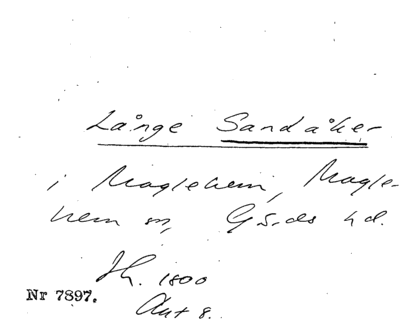 Långe Sandåker
i Maglehem, Magle-
hem sn, Gärds hd.
Sk. 1800
Nr 7897.
Akt 8.